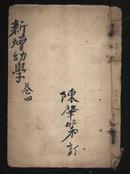 新增幼學 卷四
陳肇第訂